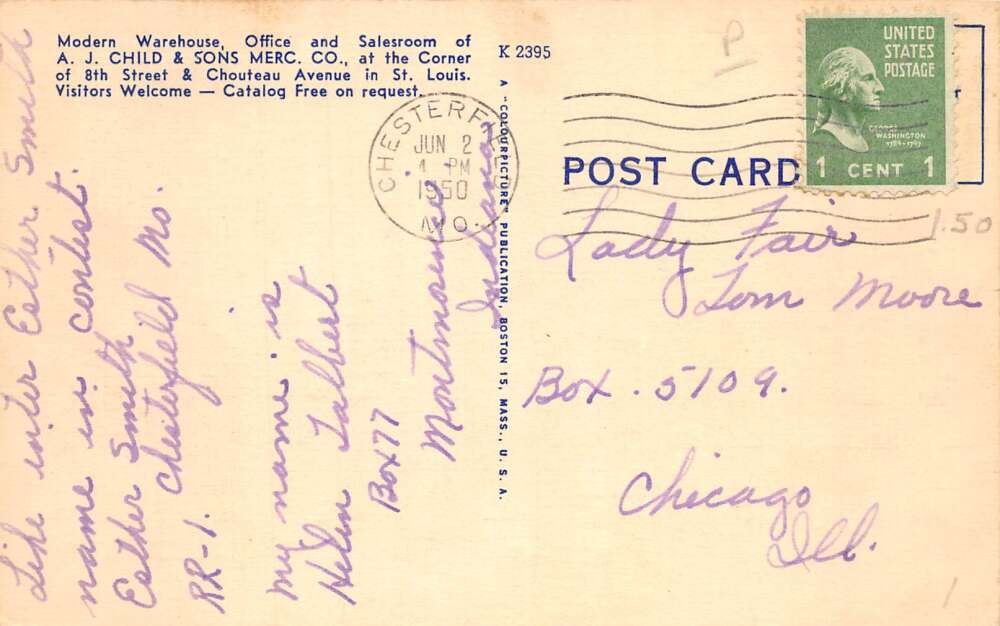 Modern Warehouse, Office and Salesroom of
A. J. CHILD & SONS MERC. CO., at the Corner
of 8th Street & Chouteau Avenue in St. Louis.
Visitors Welcome — Catalog Free on request.
K 2395
A "COLOURPICTURE" PUBLICATION, BOSTON 15, MASS., U. S. A.
P
CHESTERFIELD
JUN 2
4 PM
1950
MO.
UNITED
STATES
POSTAGE
GEORGE
WASHINGTON
1 CENT 1
POST CARD
1.50
Like enter Esther Smith
name in contest.
Esther Smith
RR-1. Chesterfield Mo.
my name is
Helen Talbert
Box 77
Montmorenci
Indiana
Lady Fair
Tom Moore
Box. 5109.
Chicago
Ill.
1